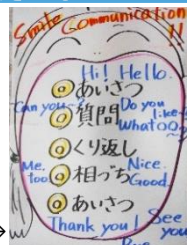 Smile Communication!!
Hi! Hello.
◎あいさつ
Can you~
◎質問 Do you like~
What ○○
◎くり返し
Me, too
◎相づち Nice. Good.
◎あいさつ
Thank you! See you